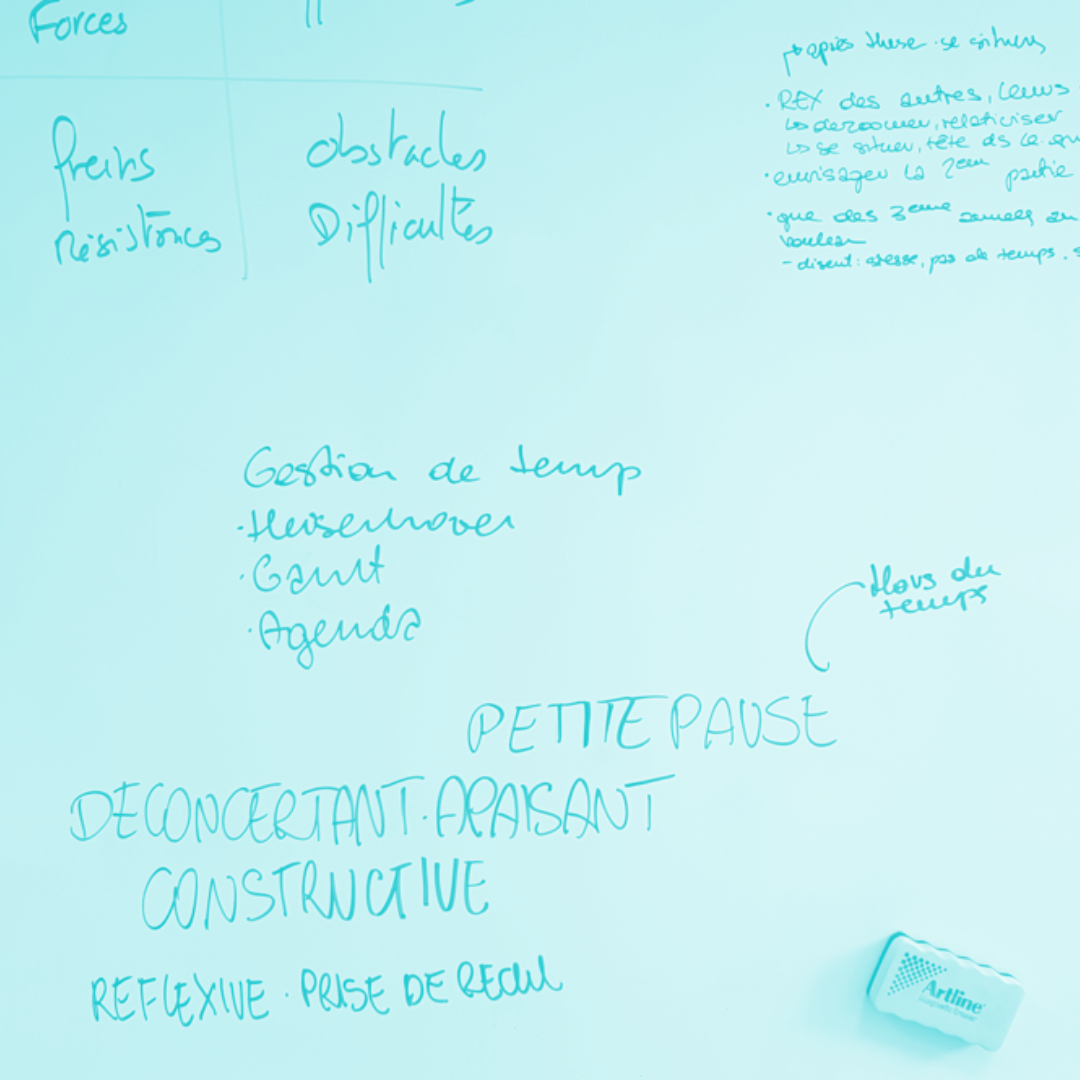 Forces
freins
résistances
obstacles
Difficultés
après these se
• REX des autres, leurs
↳ dezoomer, relativiser
↳ se situer, tête ds ce
• envisager la 2eme partie
• que des 3eme années
vouloir
- disent: stresse, pas de temps.
Gestion de temp
• Heisenhover
• Gantt
• Agenda
Hors du
temps
PETITE PAUSE
DECONCERTANT. APAISANT
CONSTRUCTIVE
REFLEXIVE. PRISE DE RECUL
Artline